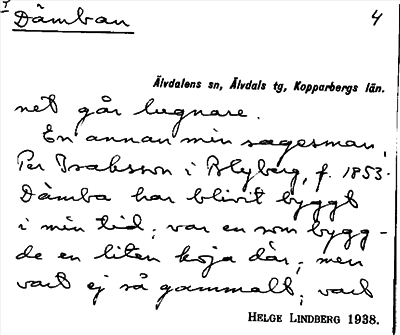 Dåmban 4
Älvdalens sn, Älvdals tg, Kopparbergs län.
net går lugnare.
En annan min sagesman,
Per Isaksson i Blyberg, f. 1853.
Dåmba har blivit byggt
i min tid; var en som bygg-
de en liten koja där; men
vart ej så gammalt; vart
HELGE LINDBERG 1938.